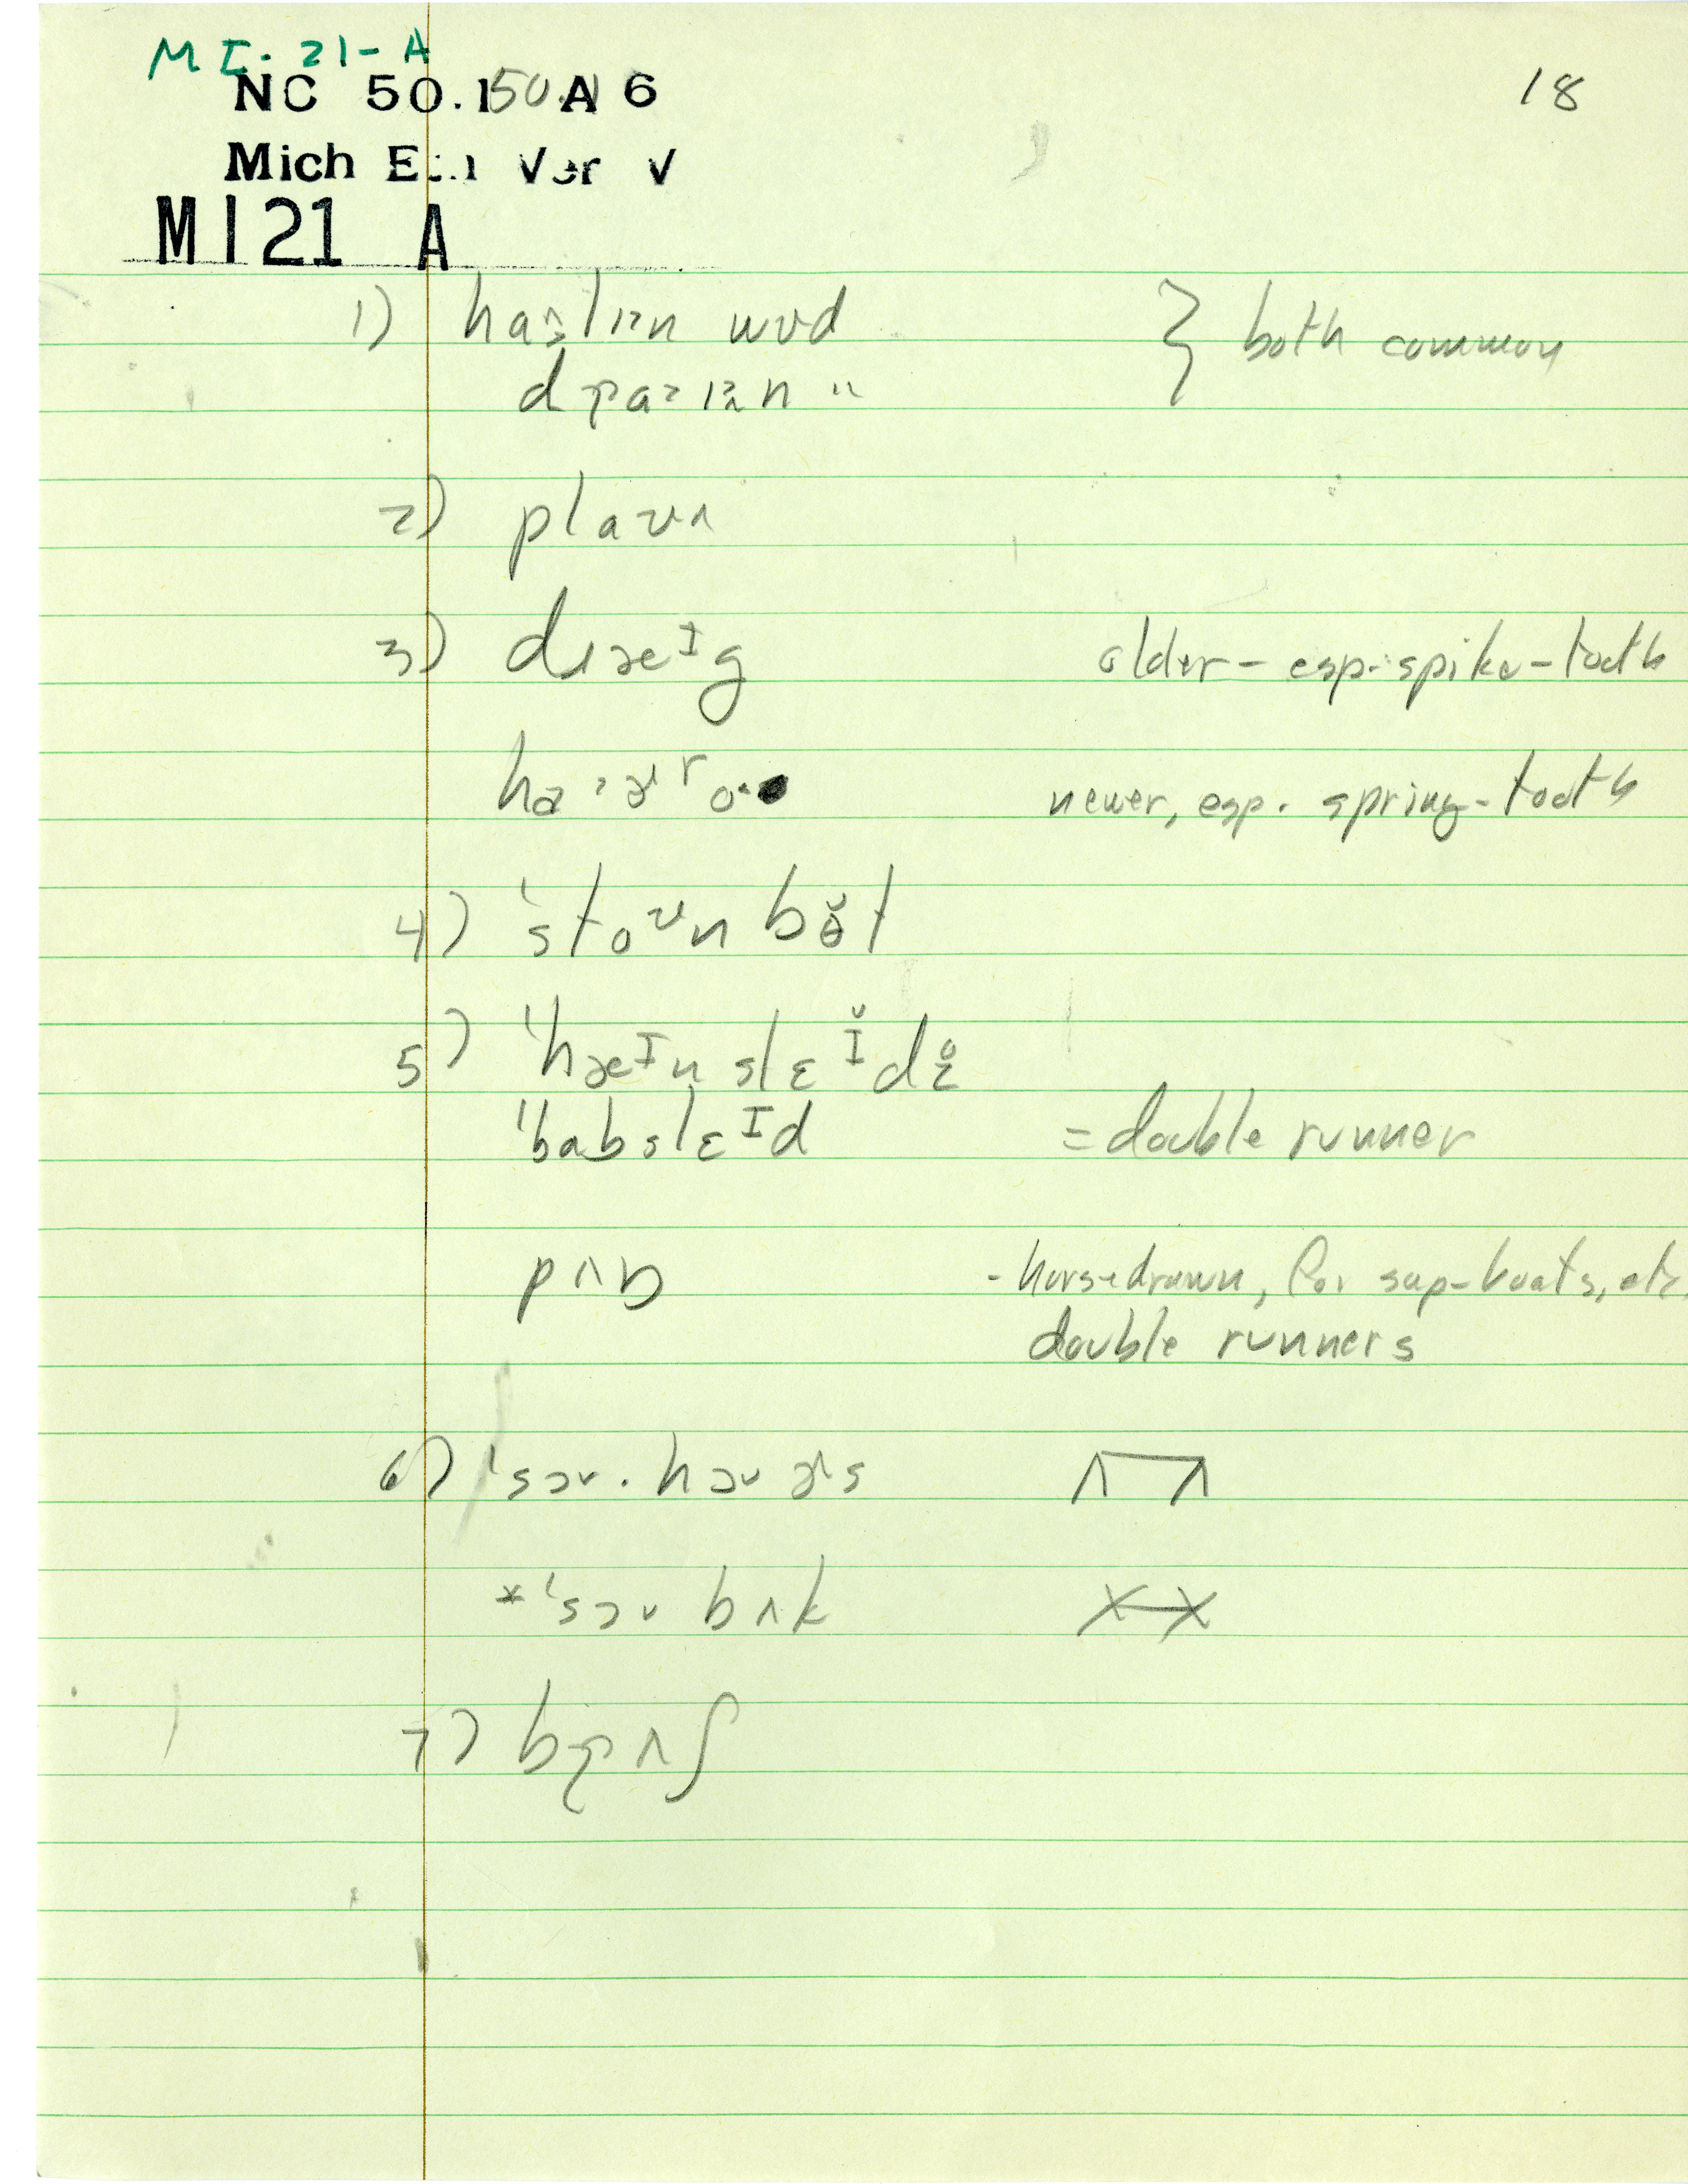 MI. 21-A
NC 50.150.A 6
18
Mich
MI21 A
1) wʊd } both common
2) plaʊʌ
3) dɹæᶦg older - esp. spike-tooth
newer, esp. spring-tooth
4) ˈstoᶷn bɵ̆t
5) ˈhæᶦnslɛᶦ̆dɛ̥
ˈbabslɛᶦd = double runner
pʌŋ - horsedrawn, for sap-boats, etc.
double runners
6) ˈsɔ˅·hɔ˅ɚs
*ˈsɔ˅bʌk
7) bɹʌʃ